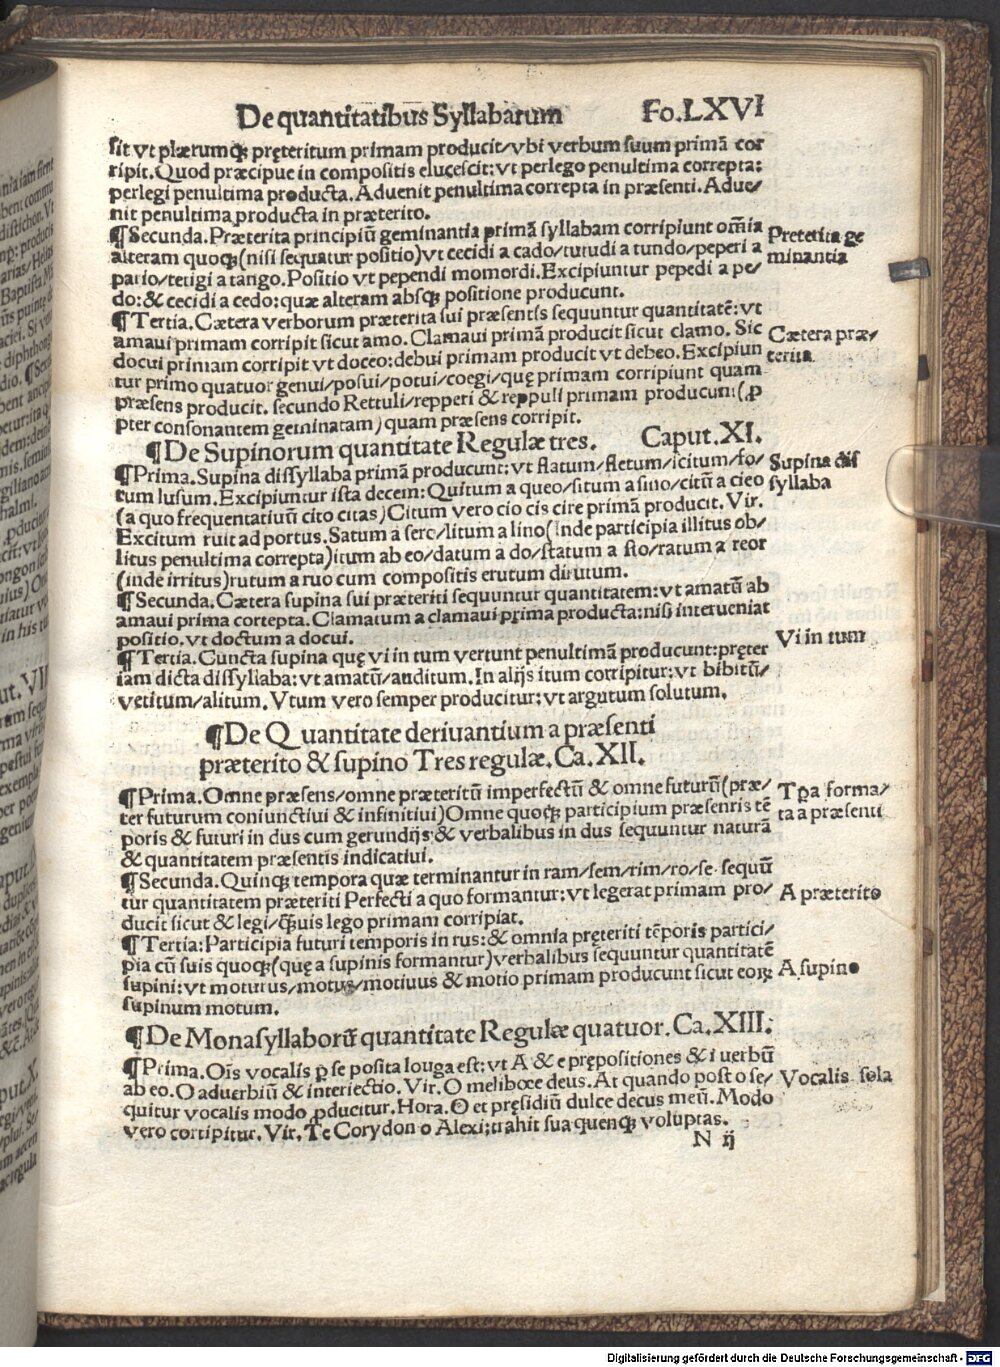 De quantitatibus Syllabarum Fo.LXVI
sit vt plærumqꝫ pręteritum primam producit/vbi verbum suum primã cor
ripit. Quod præcipue in compositis elucescit: vt perlego penultima correpta:
perlegi penultima producta. Aduenit penultima correpta in præsenti. Adue/
nit penultima producta in præterito.
¶Secunda. Præterita principiũ geminantia primã syllabam corripiunt om̃ia
alteram quoqꝫ(nisi sequatur positio)vt cecidi a cado/tutudi a tundo/peperi a
pario/tetigi a tango. Positio vt pependi momordi. Excipiuntur pepedi a pe/
do: & cecidi a cedo: quæ alteram absqꝫ positione producunt.
Preterita ge
minantia
¶Tertia. Cætera verborum præterita sui præsentis sequuntur quantitatẽ: vt
amaui primam corripit sicut amo. Clamaui primã producit sicut clamo. Sic
docui primam corripit vt doceo: debui primam producit vt debeo. Excipiun
tur primo quatuor genui/posui/potui/coegi/quę primam corripiunt quam
præsens producit. secundo Rettuli/repperi & reppuli primam producunt(ꝓ
pter consonantem geminatam) quam præsens corripit.
Cætera præ/
terita
¶De Supinorum quantitate Regulæ tres. Caput.XI.
¶Prima. Supina dissyllaba primã producunt: vt flatum/fletum/icitum/fo/
tum lusum. Excipiuntur ista decem: Quitum a queo/situm a sino/citũ a cieo
(a quo frequentatiuũ cito citas) Citum vero cio cis cire primã producit. Vir.
Excitum ruit ad portus. Satum a sero/litum a lino(inde participia illitus ob/
litus penultima correpta)itum ab eo/datum a do/statum a sto/ratum a reor
(inde irritus)rutum a ruo cum compositis erutum dirutum.
Supina dis
syllaba
¶Secunda. Cætera supina sui præteriti sequuntur quantitatem: vt amatũ ab
amaui prima correpta. Clamatum a clamaui prima producta: nisi interueniat
positio. vt doctum a docui.
¶Tertia. Cuncta supina quę vi in tum vertunt penultimã producunt: pręter
iam dicta dissyllaba: vt amatũ/auditum. In alijs itum corripitur: vt bibitũ/
vetitum/alitum. Vtum vero semper producitur: vt argutum solutum.
Vi in tum
¶De Quantitate deriuantium a præsenti
præterito & supino Tres regulæ. Ca.XII.
¶Prima. Omne præsens/omne præteritũ imperfectũ & omne futurũ(præ/
ter futurum coniunctiui & infinitiui)Omne quoqꝫ participium præsentis tẽ
poris & futuri in dus cum gerundijs & verbalibus in dus sequuntur naturã
& quantitatem præsentis indicatiui.
Tp̃a forma/
ta a præsenti
¶Secunda. Quinqꝫ tempora quæ terminantur in ram/sem/rim/ro/se. sequũ
tur quantitatem præteriti Perfecti a quo formantur: vt legerat primam pro/
ducit sicut & legi/q̃uis lego primam corripiat.
A præterito
¶Tertia: Participia futuri temporis in rus: & omnia pręteriti tẽporis partici/
pia cũ suis quoqꝫ(quę a supinis formantur)verbalibus sequuntur quantitatẽ
supini: vt moturus/motus/motiuus & motio primam producunt sicut eoꝝ
supinum motum.
A supino
¶De Monasyllaborũ quantitate Regulæ quatuor. Ca.XIII.
¶Prima. Oĩs vocalis ꝑ se posita louga est: vt A & e prępositiones & i uerbũ
ab eo. O aduerbiũ & interiectio. Vir. O meliboee deus. At quando post o se/
quitur vocalis modo ꝓducitur. Hora. O et pręsidiũ dulce decus meũ. Modo
vero corripitur. Vir. Te Corydon o Alexi; trahit sua quenqꝫ voluptas.
Vocalis sola
N ij
Digitalisierung gefördert durch die Deutsche Forschungsgemeinschaft - DFG